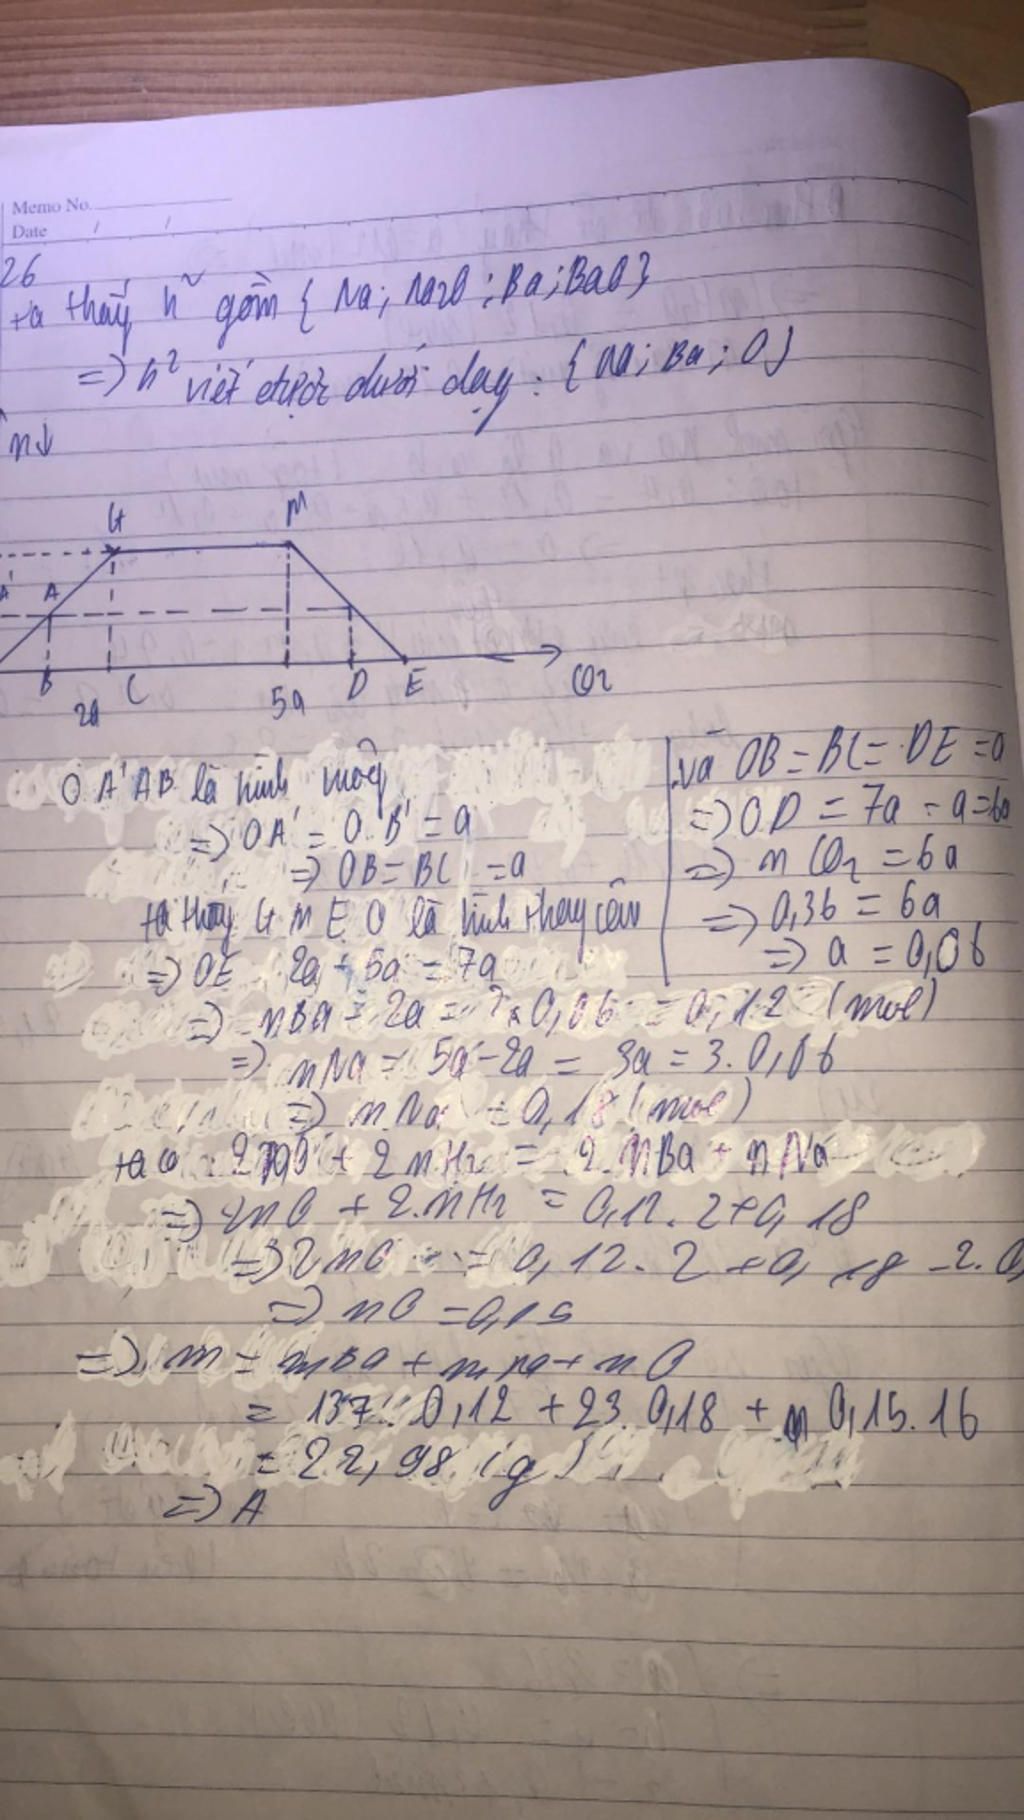 Memo No.
Date / /
26
ta thấy h² gồm { Na; Na2O; Ba; BaO}
=) h² viết được dưới dạng : { Na; Ba; O}
n↓
G M
A' A
B C D E CO2
2a 5a
O A' AB là hình
=> OA' = O B' = a
=> OB = BC = a
ta thấy G M E O là hình thang cân
=> OE = 2a + 5a = 7a
và OB = BC = DE = a
=> OD = 7a - a = 6a
=> n CO2 = 6a
=> 0,36 = 6a
=> a = 0,06
=> nBa = 2a = 2 x 0,06 = 0,12 (mol)
=> nNa = 5a - 2a = 3a = 3.0,06
=> nNa = 0,18 (mol)
ta có 2nO + 2nH2 = 2.nBa + nNa
=> 2nO + 2.nH2 = 0,12.2+0,18
=> 2nO = 0,12.2 +0,18 -2.0,
=> nO = 0,15
=> m = mBa + mNa + mO
= 137.0,12 + 23.0,18 + 0,15.16
= 22,98 (g)
=> A